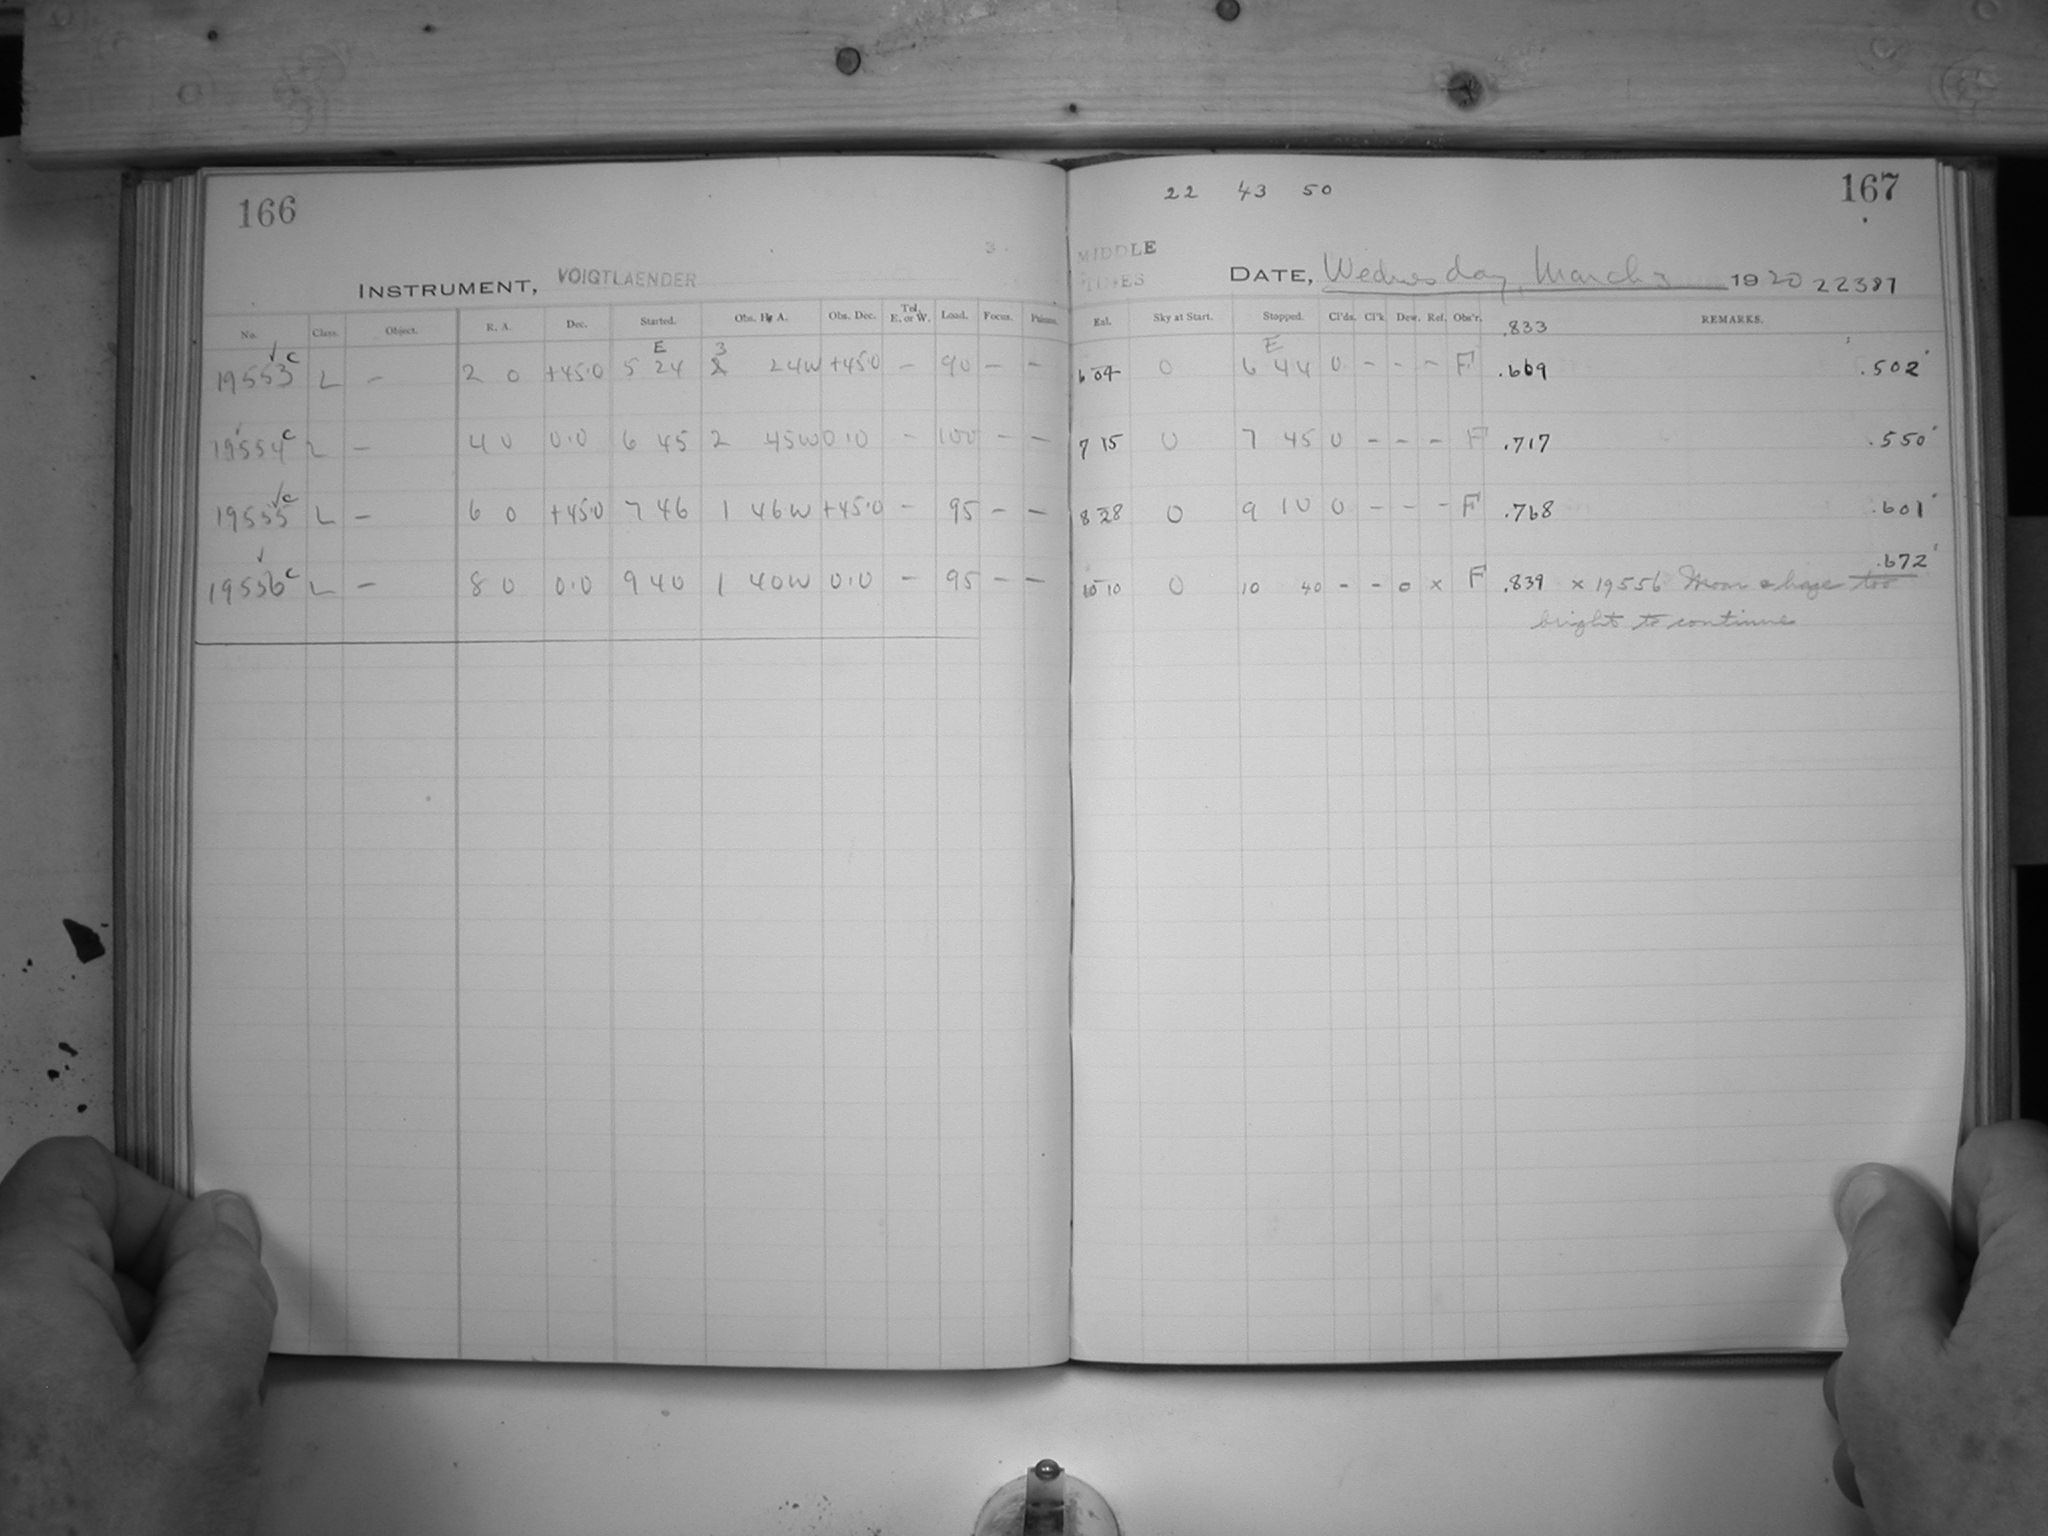 166
3
INSTRUMENT, VOIGTLAENDER
No. Class. Object. R. A. Dec. Started. Obs. Hr A. Obs. Dec. Tel. E. or W. Load. Focus.
E 3
19553 c L – 2 0 +45.0 5 24 2 24W +45.0 – 90 – –
19554 c L – 4 0 0.0 6 45 2 45W 0.0 – 100 – –
19555 c L – 6 0 +45.0 7 46 1 46W +45.0 – 95 – –
19556 c L – 8 0 0.0 9 40 1 40W 0.0 – 95 – –
22 43 50
167
MIDDLE
DATE, Wednesday, March 3 1920 22387
Sky at Start. Stopped. Cl'ds. Cl'k. Dew. Ref. Obs'r. .833 REMARKS.
E
6 04 0 6 44 0 – – – F .669 .502
7 15 0 7 45 0 – – – F .717 .550
8 28 0 9 10 0 – – – F .768 .601
.672
10 10 0 10 40 – – 0 x F .839 x 19556 Moon & haze too
bright to continue